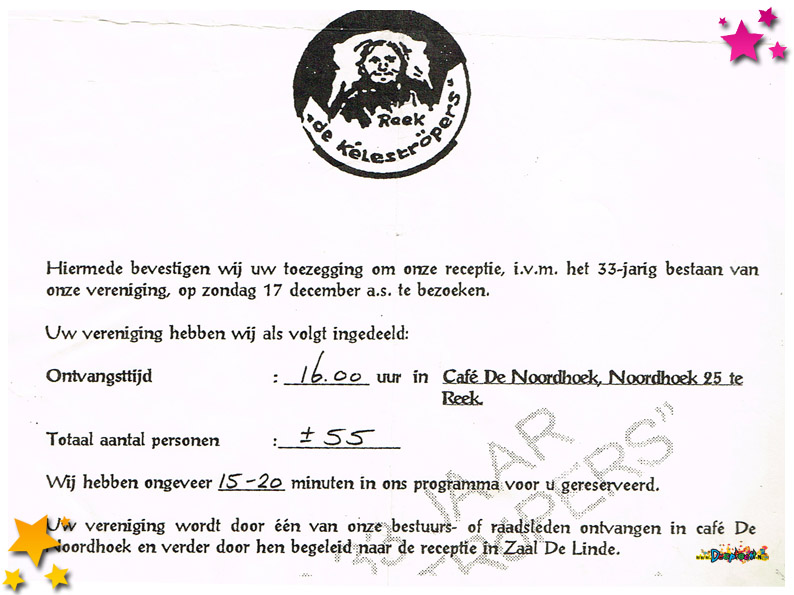 Reek
"de Kéleströpers"
Hiermede bevestigen wij uw toezegging om onze receptie, i.v.m. het 33-jarig bestaan van
onze vereniging, op zondag 17 december a.s. te bezoeken.
Uw vereniging hebben wij als volgt ingedeeld:
Ontvangsttijd : 16.00 uur in Café De Noordhoek, Noordhoek 25 te
Reek.
Totaal aantal personen : ± 55
Wij hebben ongeveer 15-20 minuten in ons programma voor u gereserveerd.
Uw vereniging wordt door één van onze bestuurs- of raadsleden ontvangen in café De
Noordhoek en verder door hen begeleid naar de receptie in Zaal De Linde.
JAAR
RÖPERS"